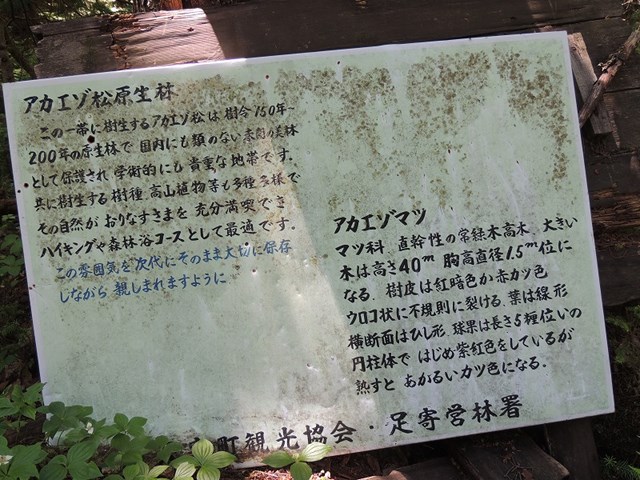 アカエゾ松原生林
この一帯に樹生するアカエゾ松は樹令150年~
200年の原生林で 国内にも類のない素晴の美林
として保護され 学術的にも貴重な地帯です.
共に樹生する樹種.高山植物等も多種多様で
その自然が おりなすさまを 充分満喫でき
ハイキングや森林浴コースとして最適です.
この雰囲気を次代にそのまま大切に保存
しながら 親しまれますように
アカエゾマツ
マツ科.直幹性の常緑木高木.大きい
木は高さ40m 胸高直径1.5m位に
なる.樹皮は紅暗色か赤カツ色
ウロコ状に不規則に裂ける.葉は線形
横断面はひし形.球果は長さ5糎位いの
円柱体で はじめ紫紅色をしているが
熟すと あかるいカツ色になる.
町観光協会・足寄営林署